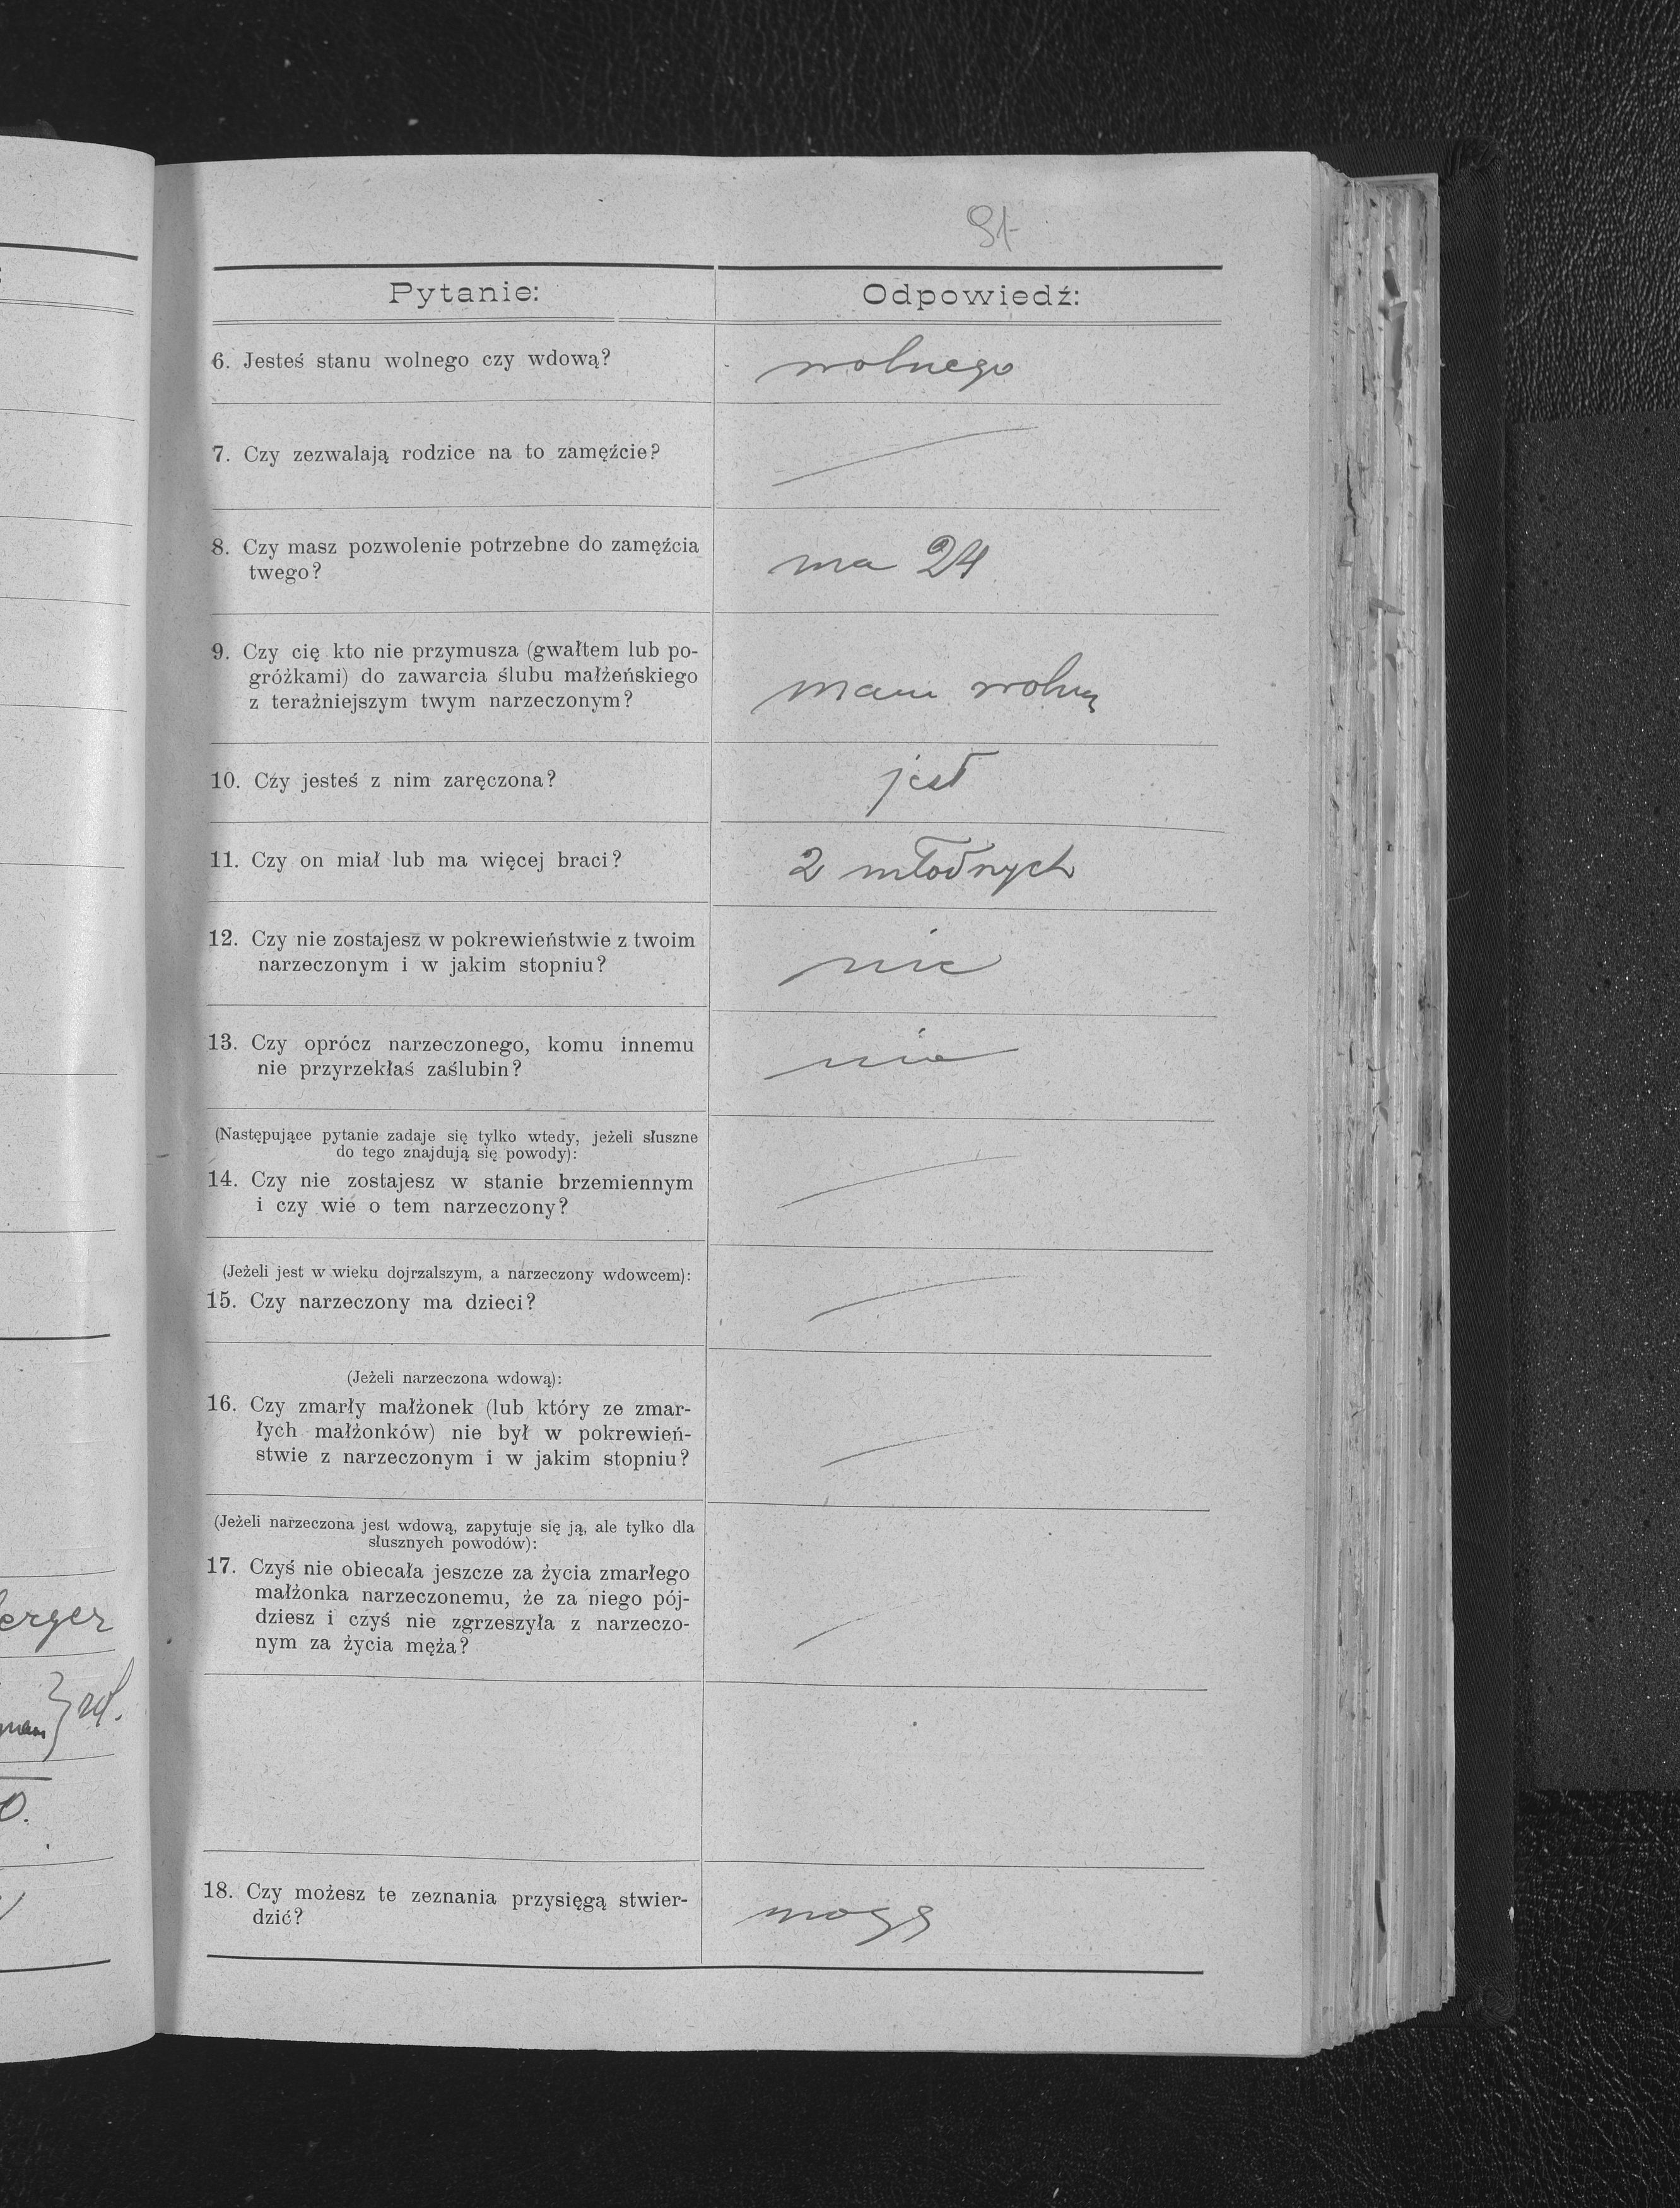 91
Pytanie:
Odpowiedź:
6. Jesteś stanu wolnego czy wdową?
wolnego
7. Czy zezwalają rodzice na to zamęźcie?
8. Czy masz pozwolenie potrzebne do zamęźcia
twego?
ma 24
9. Czy cię kto nie przymusza (gwałtem lub po-
gróżkami) do zawarcia ślubu małżeńskiego
z teraźniejszym twym narzeczonym?
mam wolną
10. Czy jesteś z nim zaręczona?
jest
11. Czy on miał lub ma więcej braci?
2 młodszych
12. Czy nie zostajesz w pokrewieństwie z twoim
narzeczonym i w jakim stopniu?
nie
13. Czy oprócz narzeczonego, komu innemu
nie przyrzekłaś zaślubin?
nie
(Następujące pytanie zadaje się tylko wtedy, jeżeli słuszne
do tego znajdują się powody):
14. Czy nie zostajesz w stanie brzemiennym
i czy wie o tem narzeczony?
(Jeżeli jest w wieku dojrzalszym, a narzeczony wdowcem):
15. Czy narzeczony ma dzieci?
(Jeżeli narzeczona wdową):
16. Czy zmarły małżonek (lub który ze zmar-
łych małżonków) nie był w pokrewień-
stwie z narzeczonym i w jakim stopniu?
(Jeżeli narzeczona jest wdową, zapytuje się ją, ale tylko dla
słusznych powodów):
17. Czyś nie obiecała jeszcze za życia zmarłego
małżonka narzeczonemu, że za niego pój-
dziesz i czyś nie zgrzeszyła z narzeczo-
nym za życia męża?
18. Czy możesz te zeznania przysięgą stwier-
dzić?
mogę